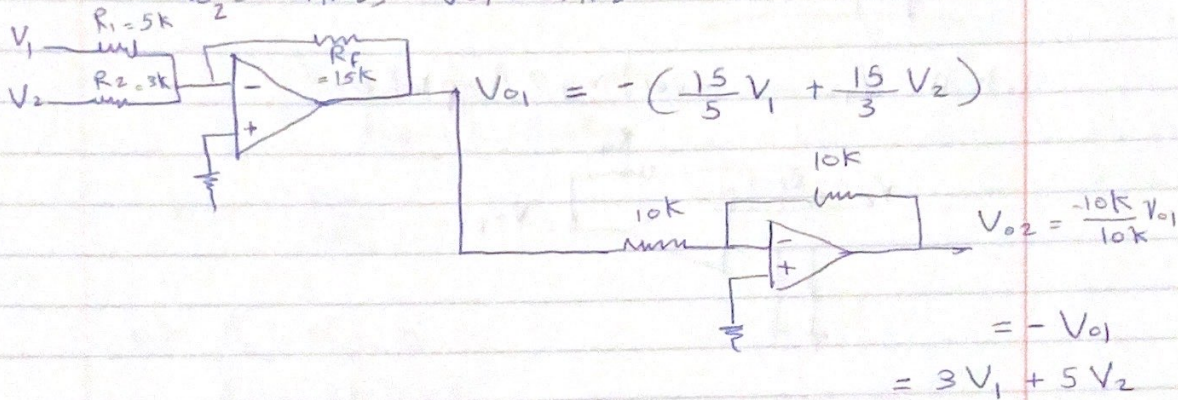 2
R1 = 5k
V1
R2 = 3k
V2
Rf
= 15k
-
+
Vo1 = - ( 15/5 V1 + 15/3 V2 )
10k
10k
-
+
Vo2 = -10k/10k Vo1
= - Vo1
= 3 V1 + 5 V2